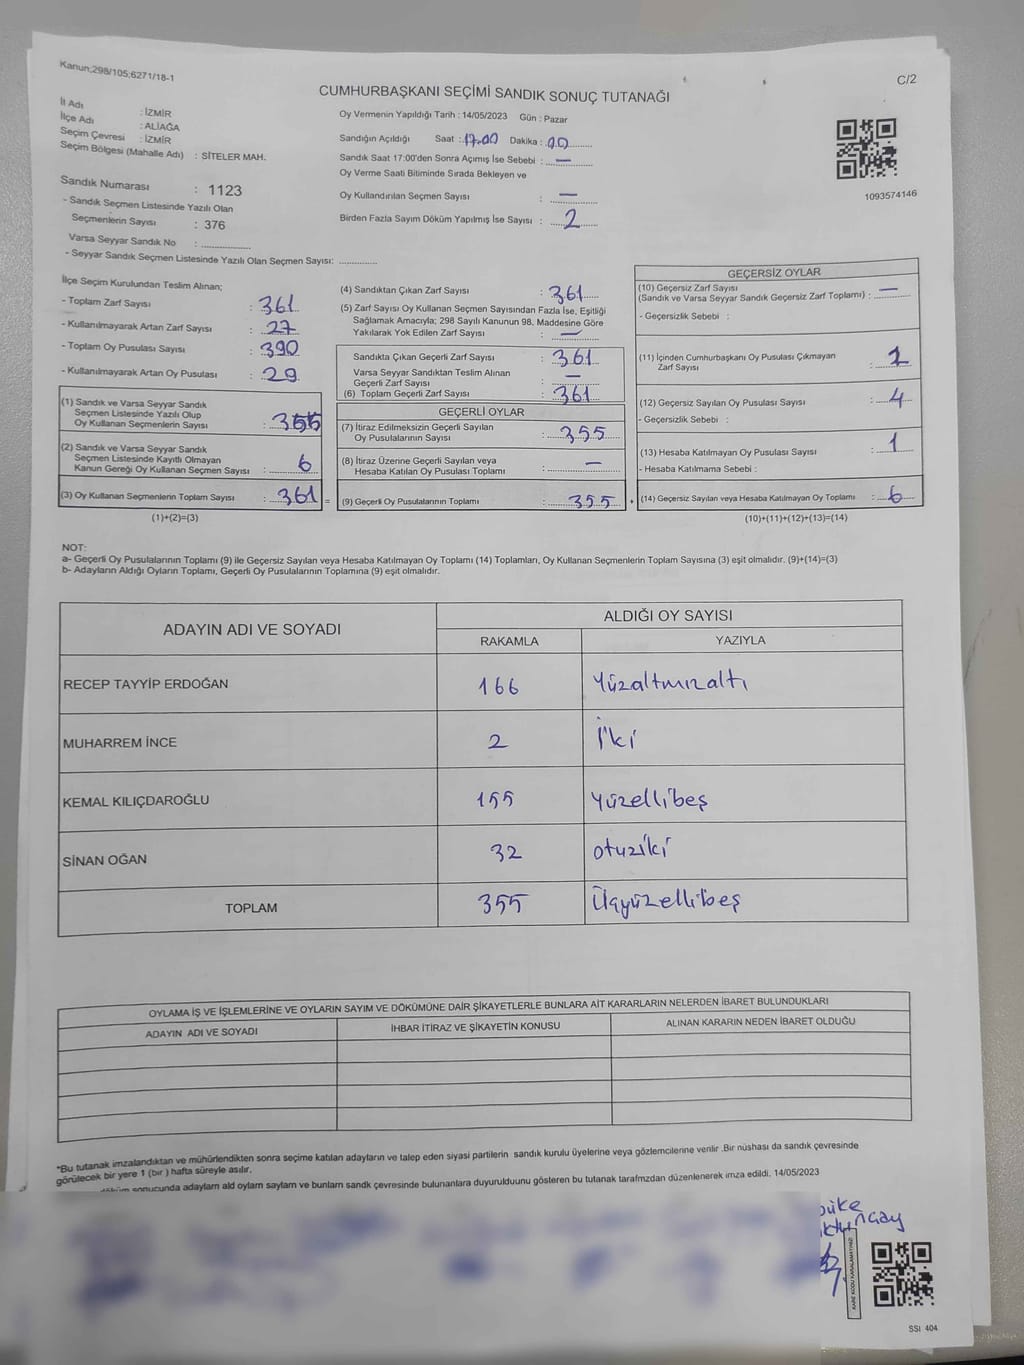 Kanun;298/105;6271/18-1
C/2
CUMHURBAŞKANI SEÇİMİ SANDIK SONUÇ TUTANAĞI
İl Adı : İZMİR
İlçe Adı : ALİAĞA
Seçim Çevresi : İZMİR
Seçim Bölgesi (Mahalle Adı) : SİTELER MAH.
Sandık Numarası : 1123
- Sandık Seçmen Listesinde Yazılı Olan
Seçmenlerin Sayısı : 376
Varsa Seyyar Sandık No :
- Seyyar Sandık Seçmen Listesinde Yazılı Olan Seçmen Sayısı:
Oy Vermenin Yapıldığı Tarih : 14/05/2023 Gün : Pazar
Sandığın Açıldığı Saat : 17.00 Dakika : 00
Sandık Saat 17:00'den Sonra Açımış İse Sebebi : —
Oy Verme Saati Bitiminde Sırada Bekleyen ve
Oy Kullandırılan Seçmen Sayısı : —
Birden Fazla Sayım Döküm Yapılmış İse Sayısı : 2
1093574146
İlçe Seçim Kurulundan Teslim Alınan;
- Toplam Zarf Sayısı : 361
- Kullanılmayarak Artan Zarf Sayısı : 27
- Toplam Oy Pusulası Sayısı : 390
- Kullanılmayarak Artan Oy Pusulası : 29
(1) Sandık ve Varsa Seyyar Sandık
Seçmen Listesinde Yazılı Olup
Oy Kullanan Seçmenlerin Sayısı : 355
(2) Sandık ve Varsa Seyyar Sandık
Seçmen Listesinde Kayıtlı Olmayan
Kanun Gereği Oy Kullanan Seçmen Sayısı : 6
(3) Oy Kullanan Seçmenlerin Toplam Sayısı : 361 =
(1)+(2)=(3)
(4) Sandıktan Çıkan Zarf Sayısı : 361
(5) Zarf Sayısı Oy Kullanan Seçmen Sayısından Fazla İse, Eşitliği
Sağlamak Amacıyla; 298 Sayılı Kanunun 98. Maddesine Göre
Yakılarak Yok Edilen Zarf Sayısı : —
Sandıkta Çıkan Geçerli Zarf Sayısı : 361
Varsa Seyyar Sandıktan Teslim Alınan
Geçerli Zarf Sayısı : —
(6) Toplam Geçerli Zarf Sayısı : 361
GEÇERLİ OYLAR
(7) İtiraz Edilmeksizin Geçerli Sayılan
Oy Pusulalarının Sayısı : 355
(8) İtiraz Üzerine Geçerli Sayılan veya
Hesaba Katılan Oy Pusulası Toplamı : —
(9) Geçerli Oy Pusulalarının Toplamı : 355 +
GEÇERSİZ OYLAR
(10) Geçersiz Zarf Sayısı
(Sandık ve Varsa Seyyar Sandık Geçersiz Zarf Toplamı) : —
- Geçersizlik Sebebi :
(11) İçinden Cumhurbaşkanı Oy Pusulası Çıkmayan
Zarf Sayısı : 1
(12) Geçersiz Sayılan Oy Pusulası Sayısı : 4
- Geçersizlik Sebebi :
(13) Hesaba Katılmayan Oy Pusulası Sayısı : 1
- Hesaba Katılmama Sebebi :
(14) Geçersiz Sayılan veya Hesaba Katılmayan Oy Toplamı : 6
(10)+(11)+(12)+(13)=(14)
NOT:
a- Geçerli Oy Pusulalarının Toplamı (9) ile Geçersiz Sayılan veya Hesaba Katılmayan Oy Toplamı (14) Toplamları, Oy Kullanan Seçmenlerin Toplam Sayısına (3) eşit olmalıdır. (9)+(14)=(3)
b- Adayların Aldığı Oyların Toplamı, Geçerli Oy Pusulalarının Toplamına (9) eşit olmalıdır.
ADAYIN ADI VE SOYADI
ALDIĞI OY SAYISI
RAKAMLA YAZIYLA
RECEP TAYYİP ERDOĞAN 166 Yüzaltmızaltı
MUHARREM İNCE 2 İki
KEMAL KILIÇDAROĞLU 155 Yüzellibeş
SİNAN OĞAN 32 otuziki
TOPLAM 355 Üçyüzellibeş
OYLAMA İŞ VE İŞLEMLERİNE VE OYLARIN SAYIM VE DÖKÜMÜNE DAİR ŞİKAYETLERLE BUNLARA AİT KARARLARIN NELERDEN İBARET BULUNDUKLARI
ADAYIN ADI VE SOYADI İHBAR İTİRAZ VE ŞİKAYETİN KONUSU ALINAN KARARIN NEDEN İBARET OLDUĞU
*Bu tutanak imzalandıktan ve mühürlendikten sonra seçime katılan adayların ve talep eden siyasi partilerin sandık kurulu üyelerine veya gözlemcilerine verilir .Bir nüshası da sandık çevresinde
görülecek bir yere 1 (bir ) hafta süreyle asılır.
döküm sonucunda adaylarn ald oylarn saylarn ve bunlarn sandk çevresinde bulunanlara duyurulduunu gösteren bu tutanak tarafmzdan düzenlenerek imza edildi. 14/05/2023
KARE KODU KARALAMAYINIZ!
SSI 404